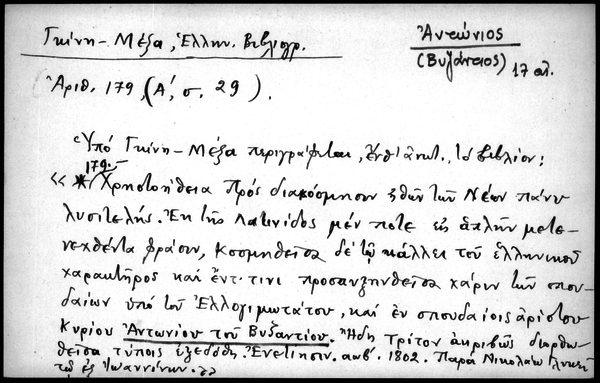 Γκίνη - Μέξα, Ἑλλην. Βιβλιογρ.
Ἀντώνιος
(Βυζάντιος) 17 αἰ.
Ἀριθ. 179, (Α΄, σ. 29).
Ὑπό Γκίνη - Μέξα περιγράφεται, ἐνθ' ἀνωτ., τό βιβλίον:
179.-
«* Χρηστοήθεια πρός διακόσμησιν ἠθῶν τῶν Νέων πάνυ
λυσιτελής. Ἐκ τῆς Λατινίδος μέν ποτε εἰς ἁπλῆν μετε-
νεχθεῖσα φράσιν, κοσμηθεῖσα δέ τῷ κάλλει τοῦ ἑλληνικοῦ
χαρακτῆρος καί ἔν τισι προσαυξηνθεῖσα χάριν τῶν σπου-
δαίων ὑπό τοῦ Ἐλλογιμωτάτου, καί ἐν σπουδαίοις ἀρίστου
Κυρίου Ἀντωνίου τοῦ Βυζαντίου. Ἤδη τρίτον ἀκριβῶς διορθω-
θεῖσα τύποις ἐξεδόθη. Ἐνετίησιν. αωβ΄. 1802. Παρά Νικολάῳ Γλυκεῖ
τῷ ἐξ Ἰωαννίνων.»